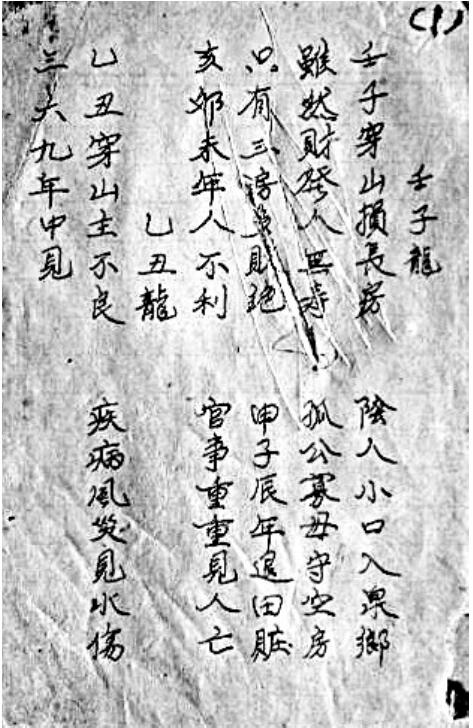 (1)
壬子龍
壬子穿山損長房 陰人小口入泉鄉
雖然財發人無壽 孤公寡母守空房
只有三房 財 申子辰年退田賍
亥卯未年人不利 官事重重見人亡
乙丑龍
乙丑穿山主不良 疾病風災見水傷
三六九年中見